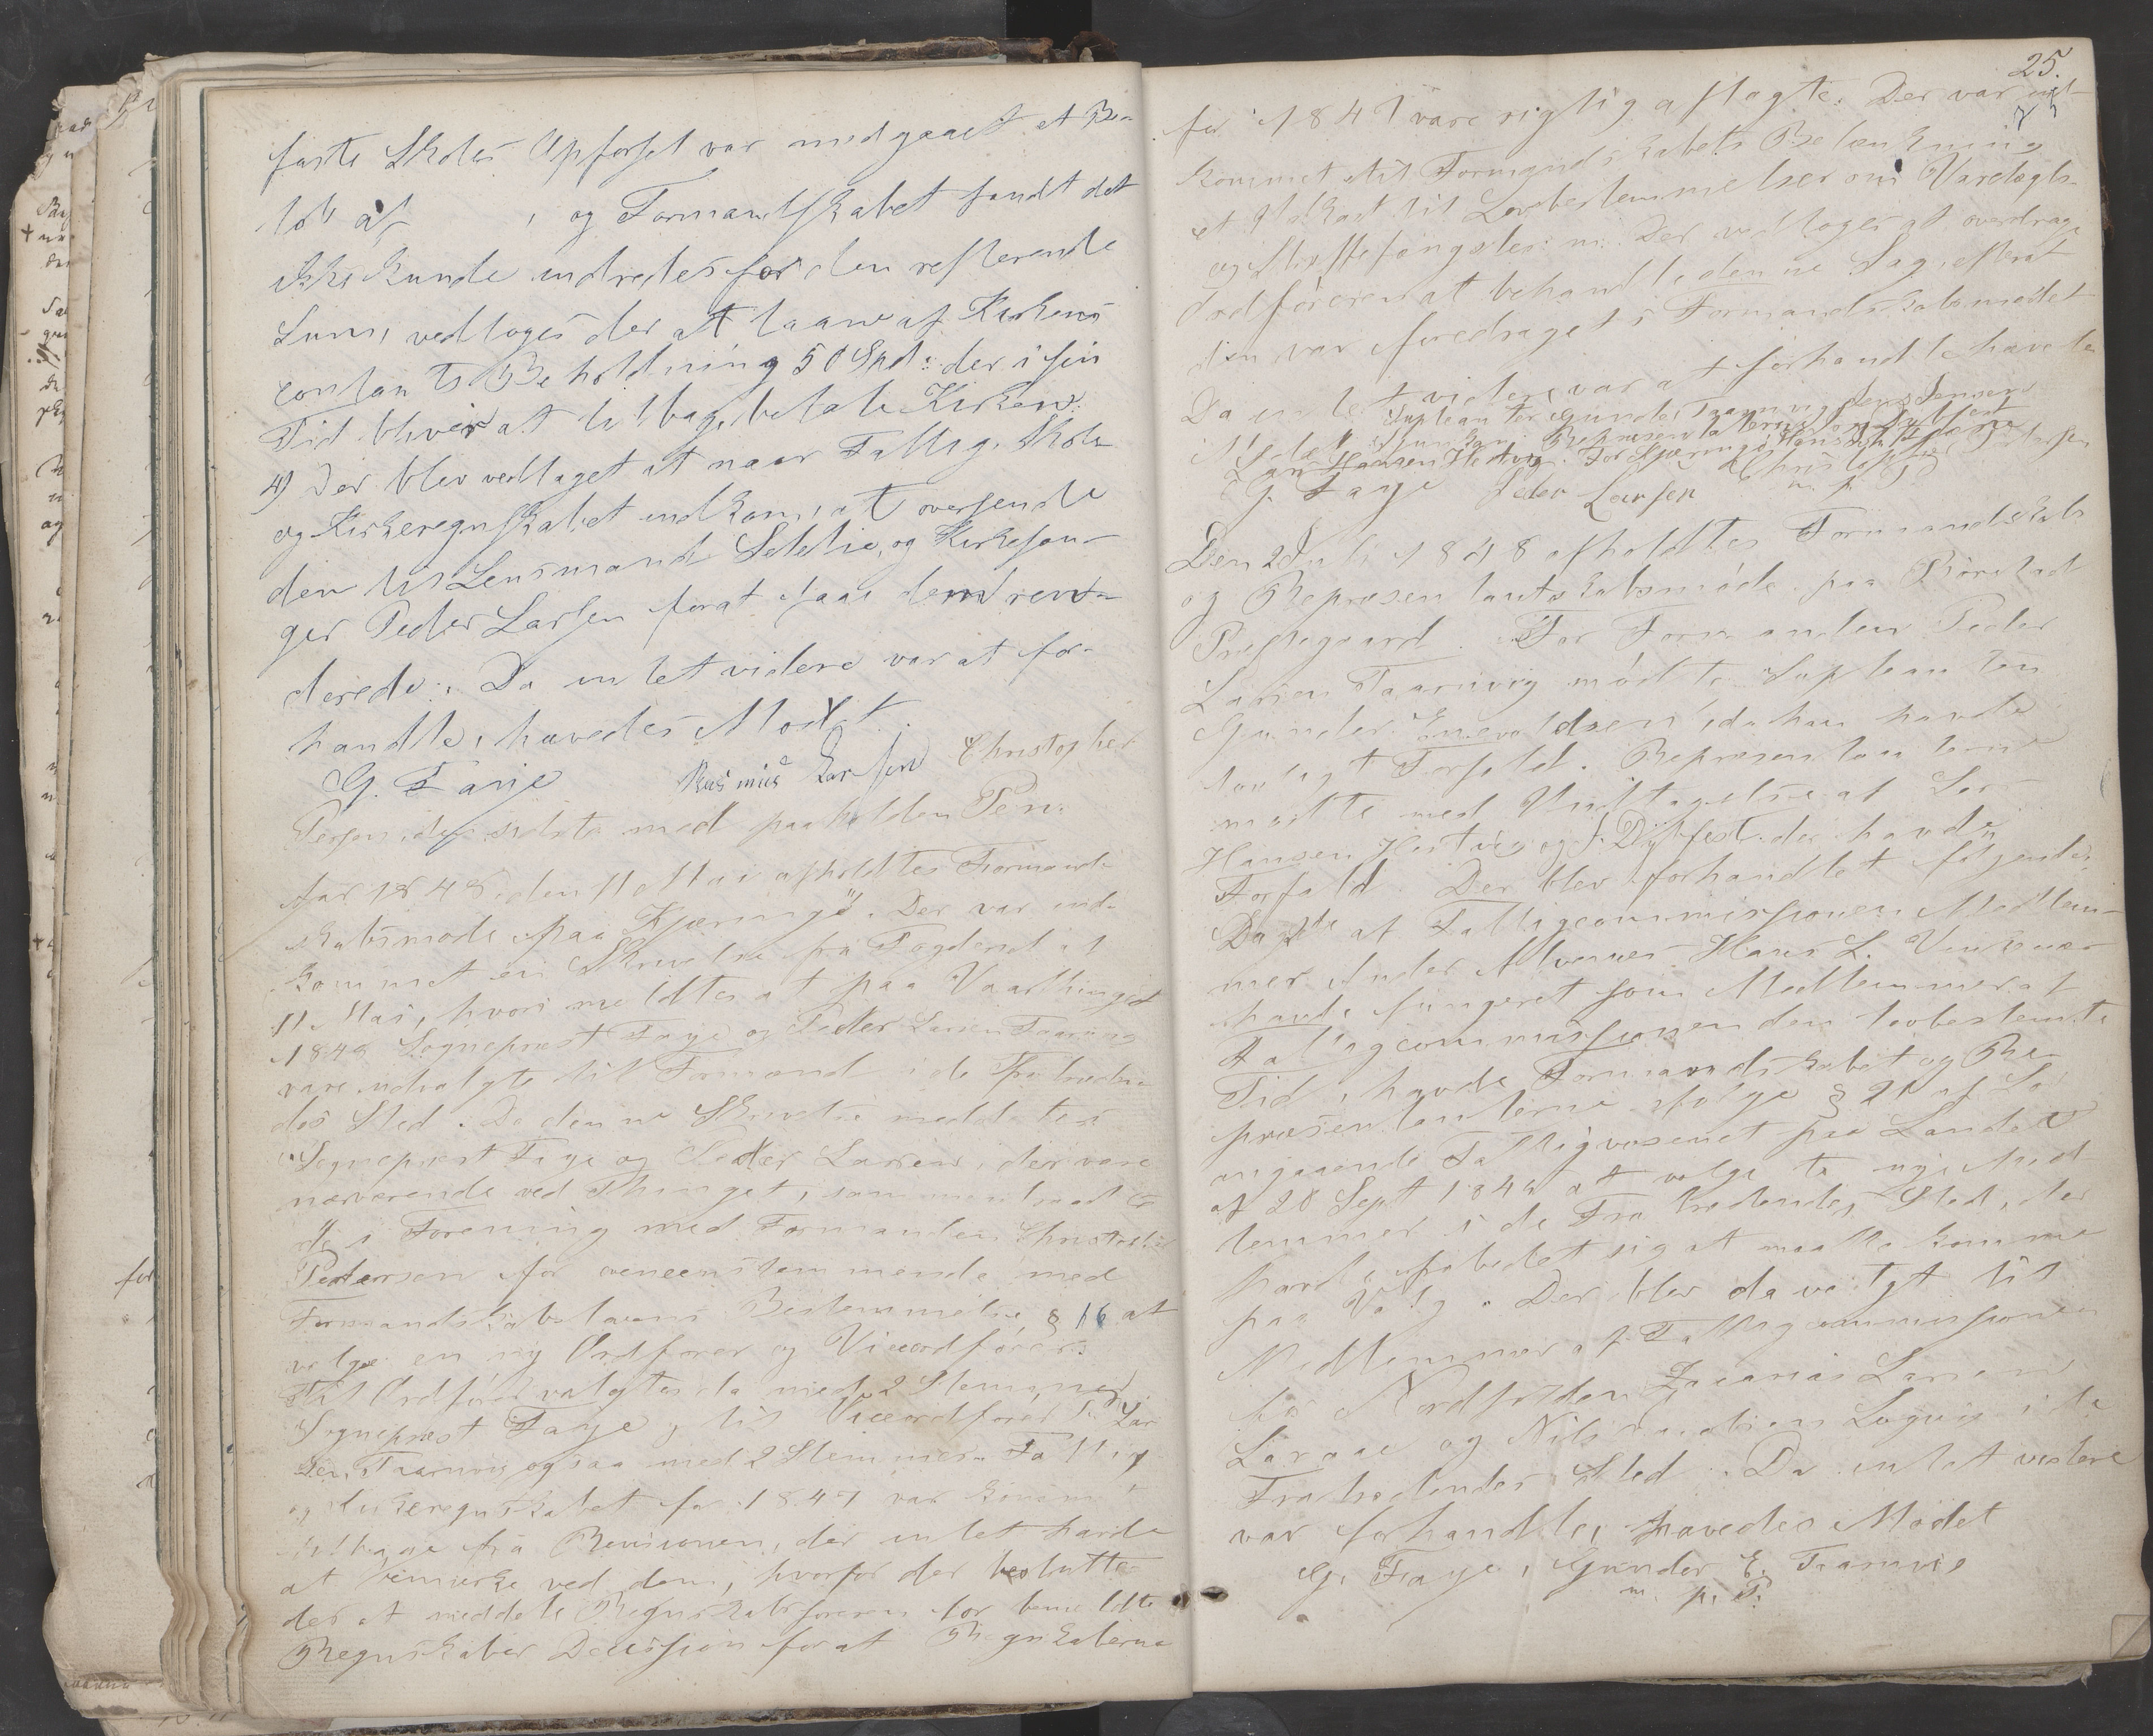 faste Skoles Opførsel var medgaaet et Be-
løb af , og Formandskabet fandt det
ikke kunde udredes for den resterende
Sum, vedtoges der at laane af Kirkens
contante Beholdning 50 Spd: der i sin
Tid bliver at tilbagebetale Kirken.
4) Der blev vedtaget at naar Fattig, Skole
og Kirkeregnskabet indkom, at oversende
dem til Lensmand og Kirkesan-
ger Peder Larsen forat faae dem reve-
derede. Da intet videre var at for-
handle, hævedes Mødet.
G. Faye Rasmus Larsen Christopher
Persen, de sidste med paaholden Pen.
Aar 1848 den 11 Mai afholdtes Formand-
skabsmøde paa Kjeringø. Der var ind-
kommet en Skrivelse fra Fogden af
11 Mai, hvori meldtes at paa Vaarthinget
1848 Sognepræst Faye og Peder Larsen Taarnvig
vare udvalgte til Formænd i de fratræden-
des Sted. Da denne Skrivelse meddeltes
Sognepræst Faye og Peder Larsen, der vare
nærværende ved Thinget, sammentraadte
de i Forening med Formanden Christopher
Pedersen for overeensstemmende med
Formandskabslovens Bestemmelse § 16 at
vælge en ny Ordfører og Viceordfører.
Til Ordfører valgtes da med 2 Stemmer
Sognepræst Faye og til Viceordfører P. Lar-
sen Taarnvig ogsaa med 2 Stemmer. Fattig
og Kirkeregnskabet for 1847 var kommet
tilbage fra Revisionen, der intet havde
at bemærke ved dem, hvorfor der beslutte-
des at meddele Regnskabsføreren for bemeldte
Regnskaber Decission for at Regnskaberne
25.
for 1847 vare rigtig aflagte. Der var ind-
kommet til Formandskabets Betænkning
et Udkast til Lovbestemmelser om Vardøgls-
og m. Der vedtoges at overdrage
Ordføreren at behandle denne Sag, efterat
den var foredraget i Formandskabsmødet
Da intet videre var at forhandle hævedes
Mødet. Supleanter Gunder Taarnvig, Jens Jensen
Repræsentanterne
Lars Hansen Hestvig. For Kjæringø Hans
G. Faye Peder Larsen Christopher Persen
m. p. P.
Den 2 Juli 1848 afholdtes Formandskabs
og Repræsentantskabsmøde paa Rørstad
Præstegaard. For Formanden Peder
Larsen Taarnvig mødte Supleanten
Gunder Enevoldsen, da han havde
lovligt Forfald. Repræsentanterne
mødte med Undtagelse af Lars
Hansen Hestvig og J. Dypfest der havde
Forfald. Der blev forhandlet følgende:
Da 2de af Fattigcommissionens Medlem-
mer Anders Hans L. Vinkenes
havde fungeret som Medlemmer af
Fattigcommissionen den lovbestemte
Tid, havde Formandskabet og Re-
præsentanterne ifølge § 21 af Lov
angaaende Fattigvæsenet paa Landet
af 20 Sept 1845 at vælge to nye Med-
lemmer i de Fratrædendes Sted, der
havde frabedet sig at maatte komme
paa Valg. Der blev da valgt til
Medlemmer af Fattigcommissionen
for Nordfolden Zacarias Larsen
og Nils i de
Fratrædendes Sted. Da intet videre
var forhandle, hævedes Mødet
G. Faye, Gunder E. Taarnvig
m. p. P.